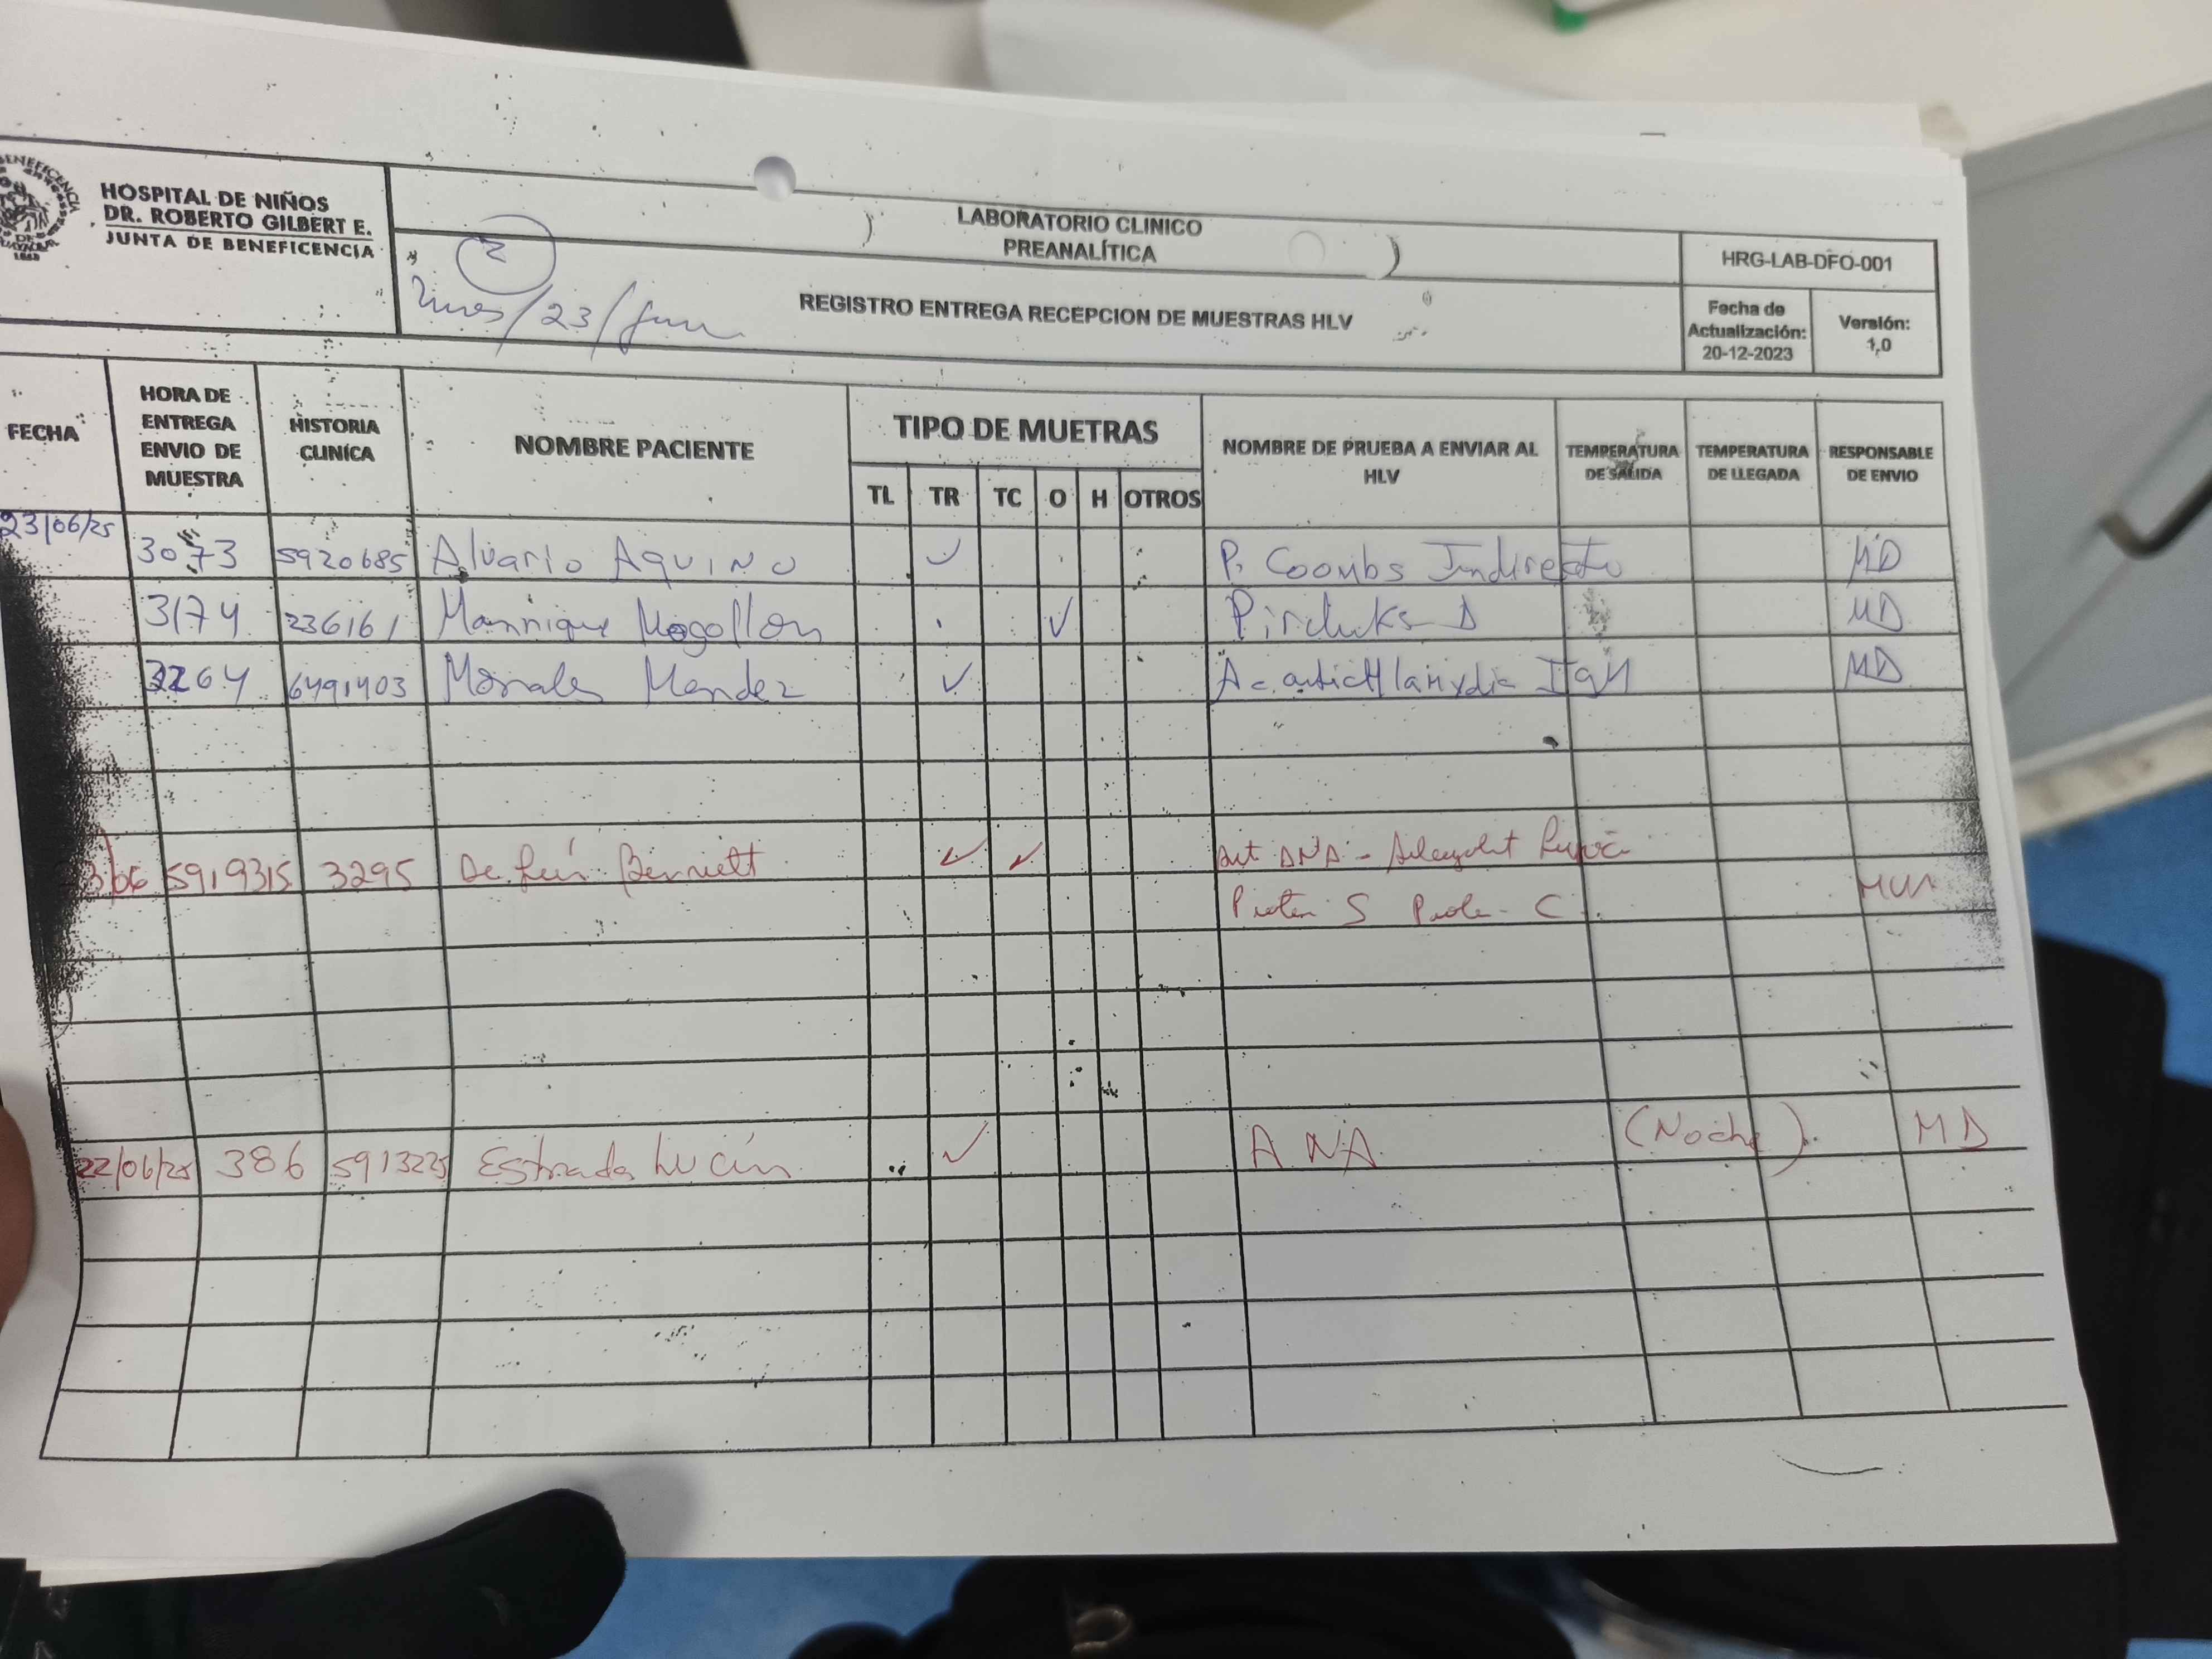 BENEFICENCIA
DE
1888
HOSPITAL DE NIÑOS
DR. ROBERTO GILBERT E.
JUNTA DE BENEFICENCIA
LABORATORIO CLINICO
PREANALÍTICA
2
/23/Jun
REGISTRO ENTREGA RECEPCION DE MUESTRAS HLV
HRG-LAB-DFO-001
Fecha de
Actualización:
20-12-2023
Versión:
1,0
FECHA
HORA DE
ENTREGA
ENVIO DE
MUESTRA
HISTORIA
CLINÍCA
NOMBRE PACIENTE
TIPO DE MUETRAS
TL TR TC O H OTROS
NOMBRE DE PRUEBA A ENVIAR AL
HLV
TEMPERATURA
DE SALIDA
TEMPERATURA
DE LLEGADA
RESPONSABLE
DE ENVIO
23/06/25 3073 5920685 Alvario Aquino ✓ P. Coombs Indirecto MD
3174 236161 Manrique Mogollon ✓ MD
3264 6491403 Morales Mendez ✓ MD
5919315 3295 De ✓ ✓
S C
22/06/25 386 5913225 Estrada ✓ ANA (Noche) MD